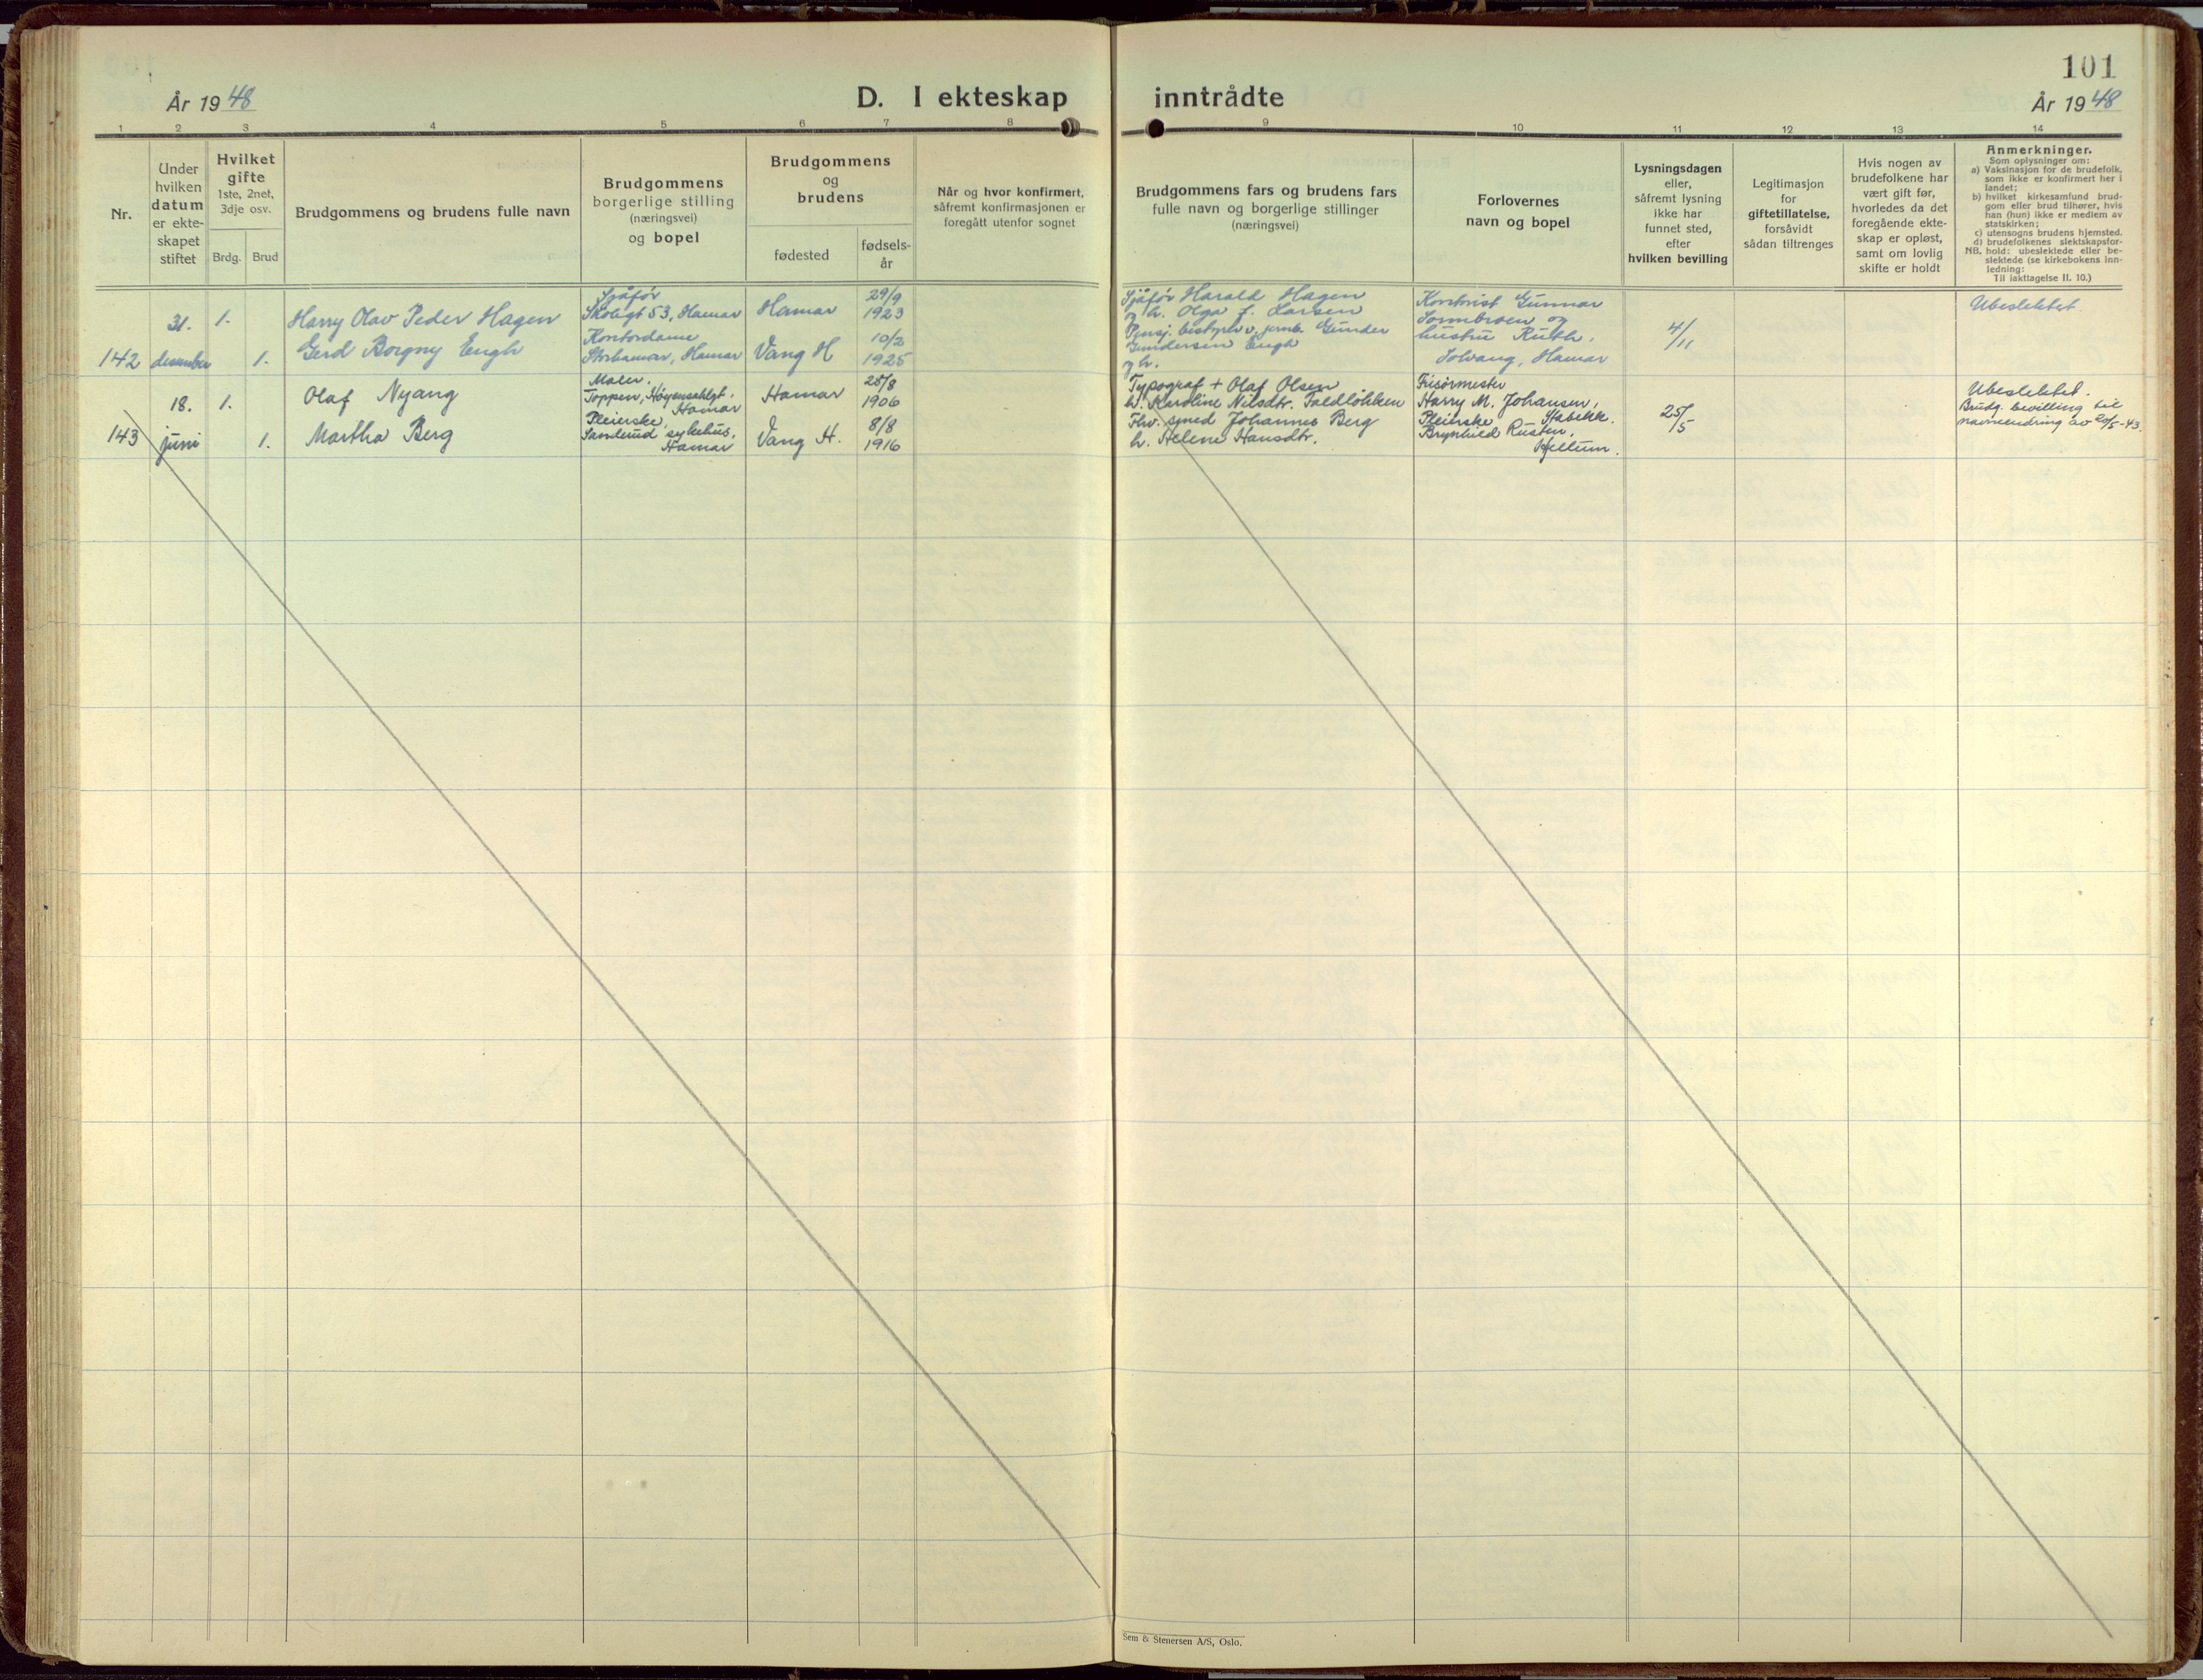 101
År 1948
D. I ekteskap inntrådte
År 1948
1 2 3 4 5 6 7 8 9 10 11 12 13 14
Nr.
Under
hvilken
datum
er ekte-
skapet
stiftet
Hvilket
gifte
1ste, 2net,
3dje osv.
Brdg. Brud
Brudgommens og brudens fulle navn
Brudgommens
borgerlige stilling
(næringsvei)
og bopel
Brudgommens
og
brudens
fødested
fødsels-
år
Når og hvor konfirmert,
såfremt konfirmasjonen er
foregått utenfor sognet
Brudgommens fars og brudens fars
fulle navn og borgerlige stillinger
(næringsvei)
Forlovernes
navn og bopel
Lysningsdagen
eller,
såfremt lysning
ikke har
funnet sted,
efter
hvilken bevilling
Legitimasjon
for
giftetillatelse,
forsåvidt
sådan tiltrenges
Hvis nogen av
brudefolkene har
vært gift før,
hvorledes da det
foregående ekte-
skap er opløst,
samt om lovlig
skifte er holdt
Anmerkninger.
Som oplysninger om:
a) Vaksinasjon for de brudefolk,
som ikke er konfirmert her i
landet;
b) hvilket kirkesamfund brud-
gom eller brud tilhører, hvis
han (hun) ikke er medlem av
statskirken;
c) utensogns brudens hjemsted.
d) brudefolkenes slektskapsfor-
NB. hold: ubeslektede eller be-
slektede (se kirkebokens inn-
ledning:
Til iakttagelse II. 10.)
142
31.
desember
1.
1.
Harry Olav Peder Hagen
Gerd Borgny Engh
Sjåfør
Skolegt 53, Hamar
Kontordame
Storhamar, Hamar
Hamar
Vang H
29/9
1923
10/2
1925
Sjåfør Harald Hagen
og h. Olga f. Larsen
Pensj. bestyrer v. jernb. Gunder
Gundersen Engh
og h.
Kontorist Gunnar
Sonnbroen og
hustru Ruth,
Solvang, Hamar
4/11
Ubeslektet.
143
18.
juni
1.
1.
Olaf Nyang
Martha Berg
Maler.
Toppen, Høyensahlgt,
Hamar
Pleierske,
Sanderud sykehus,
Hamar
Hamar
Vang H.
28/8
1906
8/8
1916
Typograf + Olaf Olsen
h. Karoline Nilsdtr. Faldløkken
Fhv. smed Johannes Berg
h. Helene Hansdtr.
Frisørmester
Harry M. Johansen,
Stabekk.
Pleierske
Brynhild Rusten,
Kjellum.
25/5
Ubeslektet.
Brudg. bevilling til
navneendring av 20/5-43.
Sem & Stenersen A/S, Oslo.